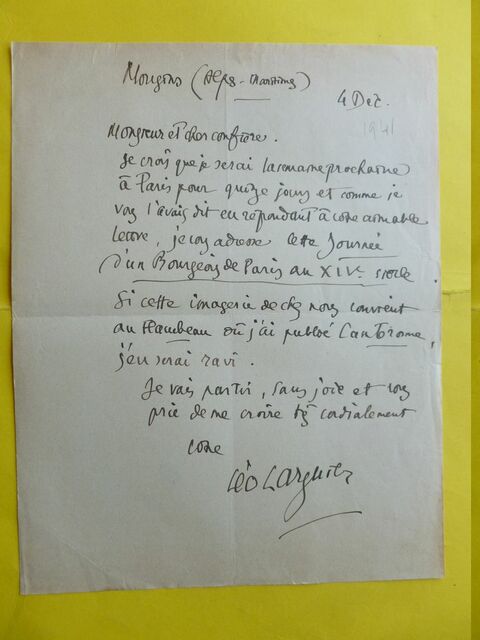 Mougins (Alpes-Maritimes)
4 Dec.
1941
Monsieur et cher confrère.
Je crois que je serai la semaine prochaine
à Paris pour quinze jours et comme je
vous l'avais dit en répondant à votre aimable
lettre, je vous adresse cette Journée
d'un Bourgeois de Paris au XIVe siècle
Si cette imagerie de chez nous convient
au Flambeau où j'ai publié
j'en serai ravi.
Je vais partir, sans joie et vous
prie de me croire ts cordialement
votre
Léo Larguier